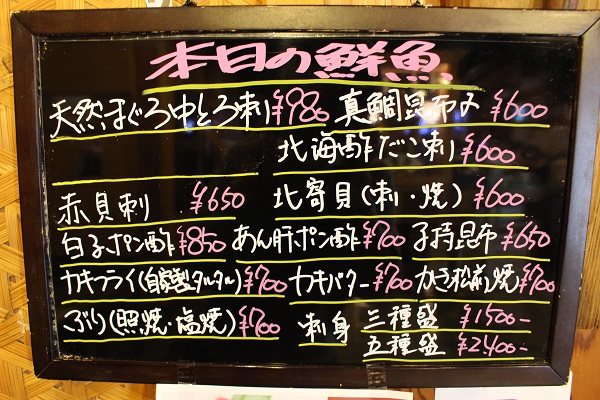 本日の鮮魚
天然まぐろ中とろ刺¥980 真鯛昆布〆¥600
北海酢だこ刺¥600
赤貝刺 ¥650 北寄貝(刺・焼)¥600
白子ポン酢¥850 あん肝ポン酢¥700 子持昆布¥650
カキフライ(自家製タルタル)¥700 カキバター¥700 かき松前焼¥700
ぶり(照焼・塩焼)¥700 刺身 三種盛 ¥1500-
五種盛 ¥2400-